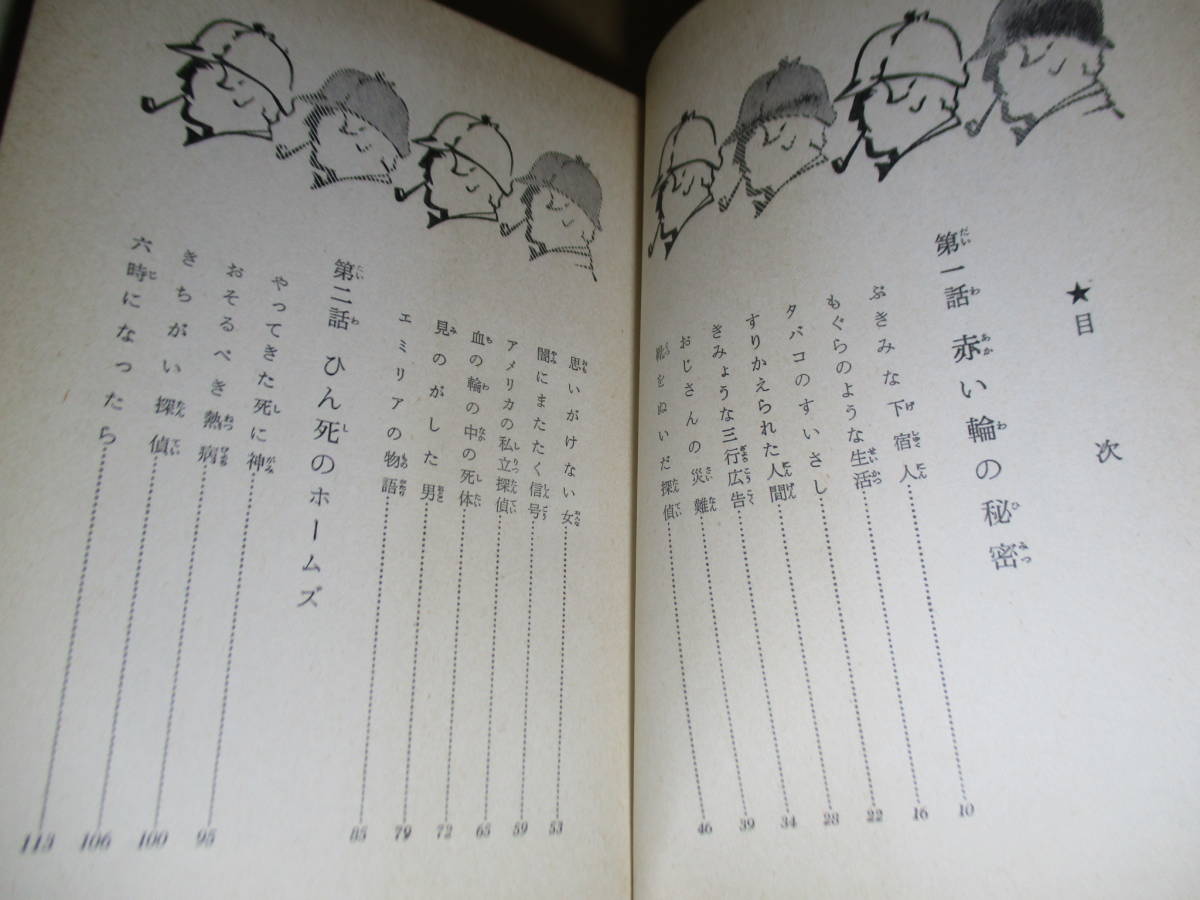 ★目次
第一話 赤い輪の秘密
ぶきみな下宿人……10
もぐらのような生活……16
タバコのすいさし……22
すりかえられた人間……28
きみょうな三行広告……34
おじさんの災難……39
靴をぬいだ探偵……46
思いがけない女……53
闇にまたたく信号……59
アメリカの私立探偵……65
血の輪の中の死体……72
見のがした男……79
エミリアの物語……85
第二話 ひん死のホームズ
やってきた死に神……95
おそるべき熱病……100
きちがい探偵……106
六時になったら……113